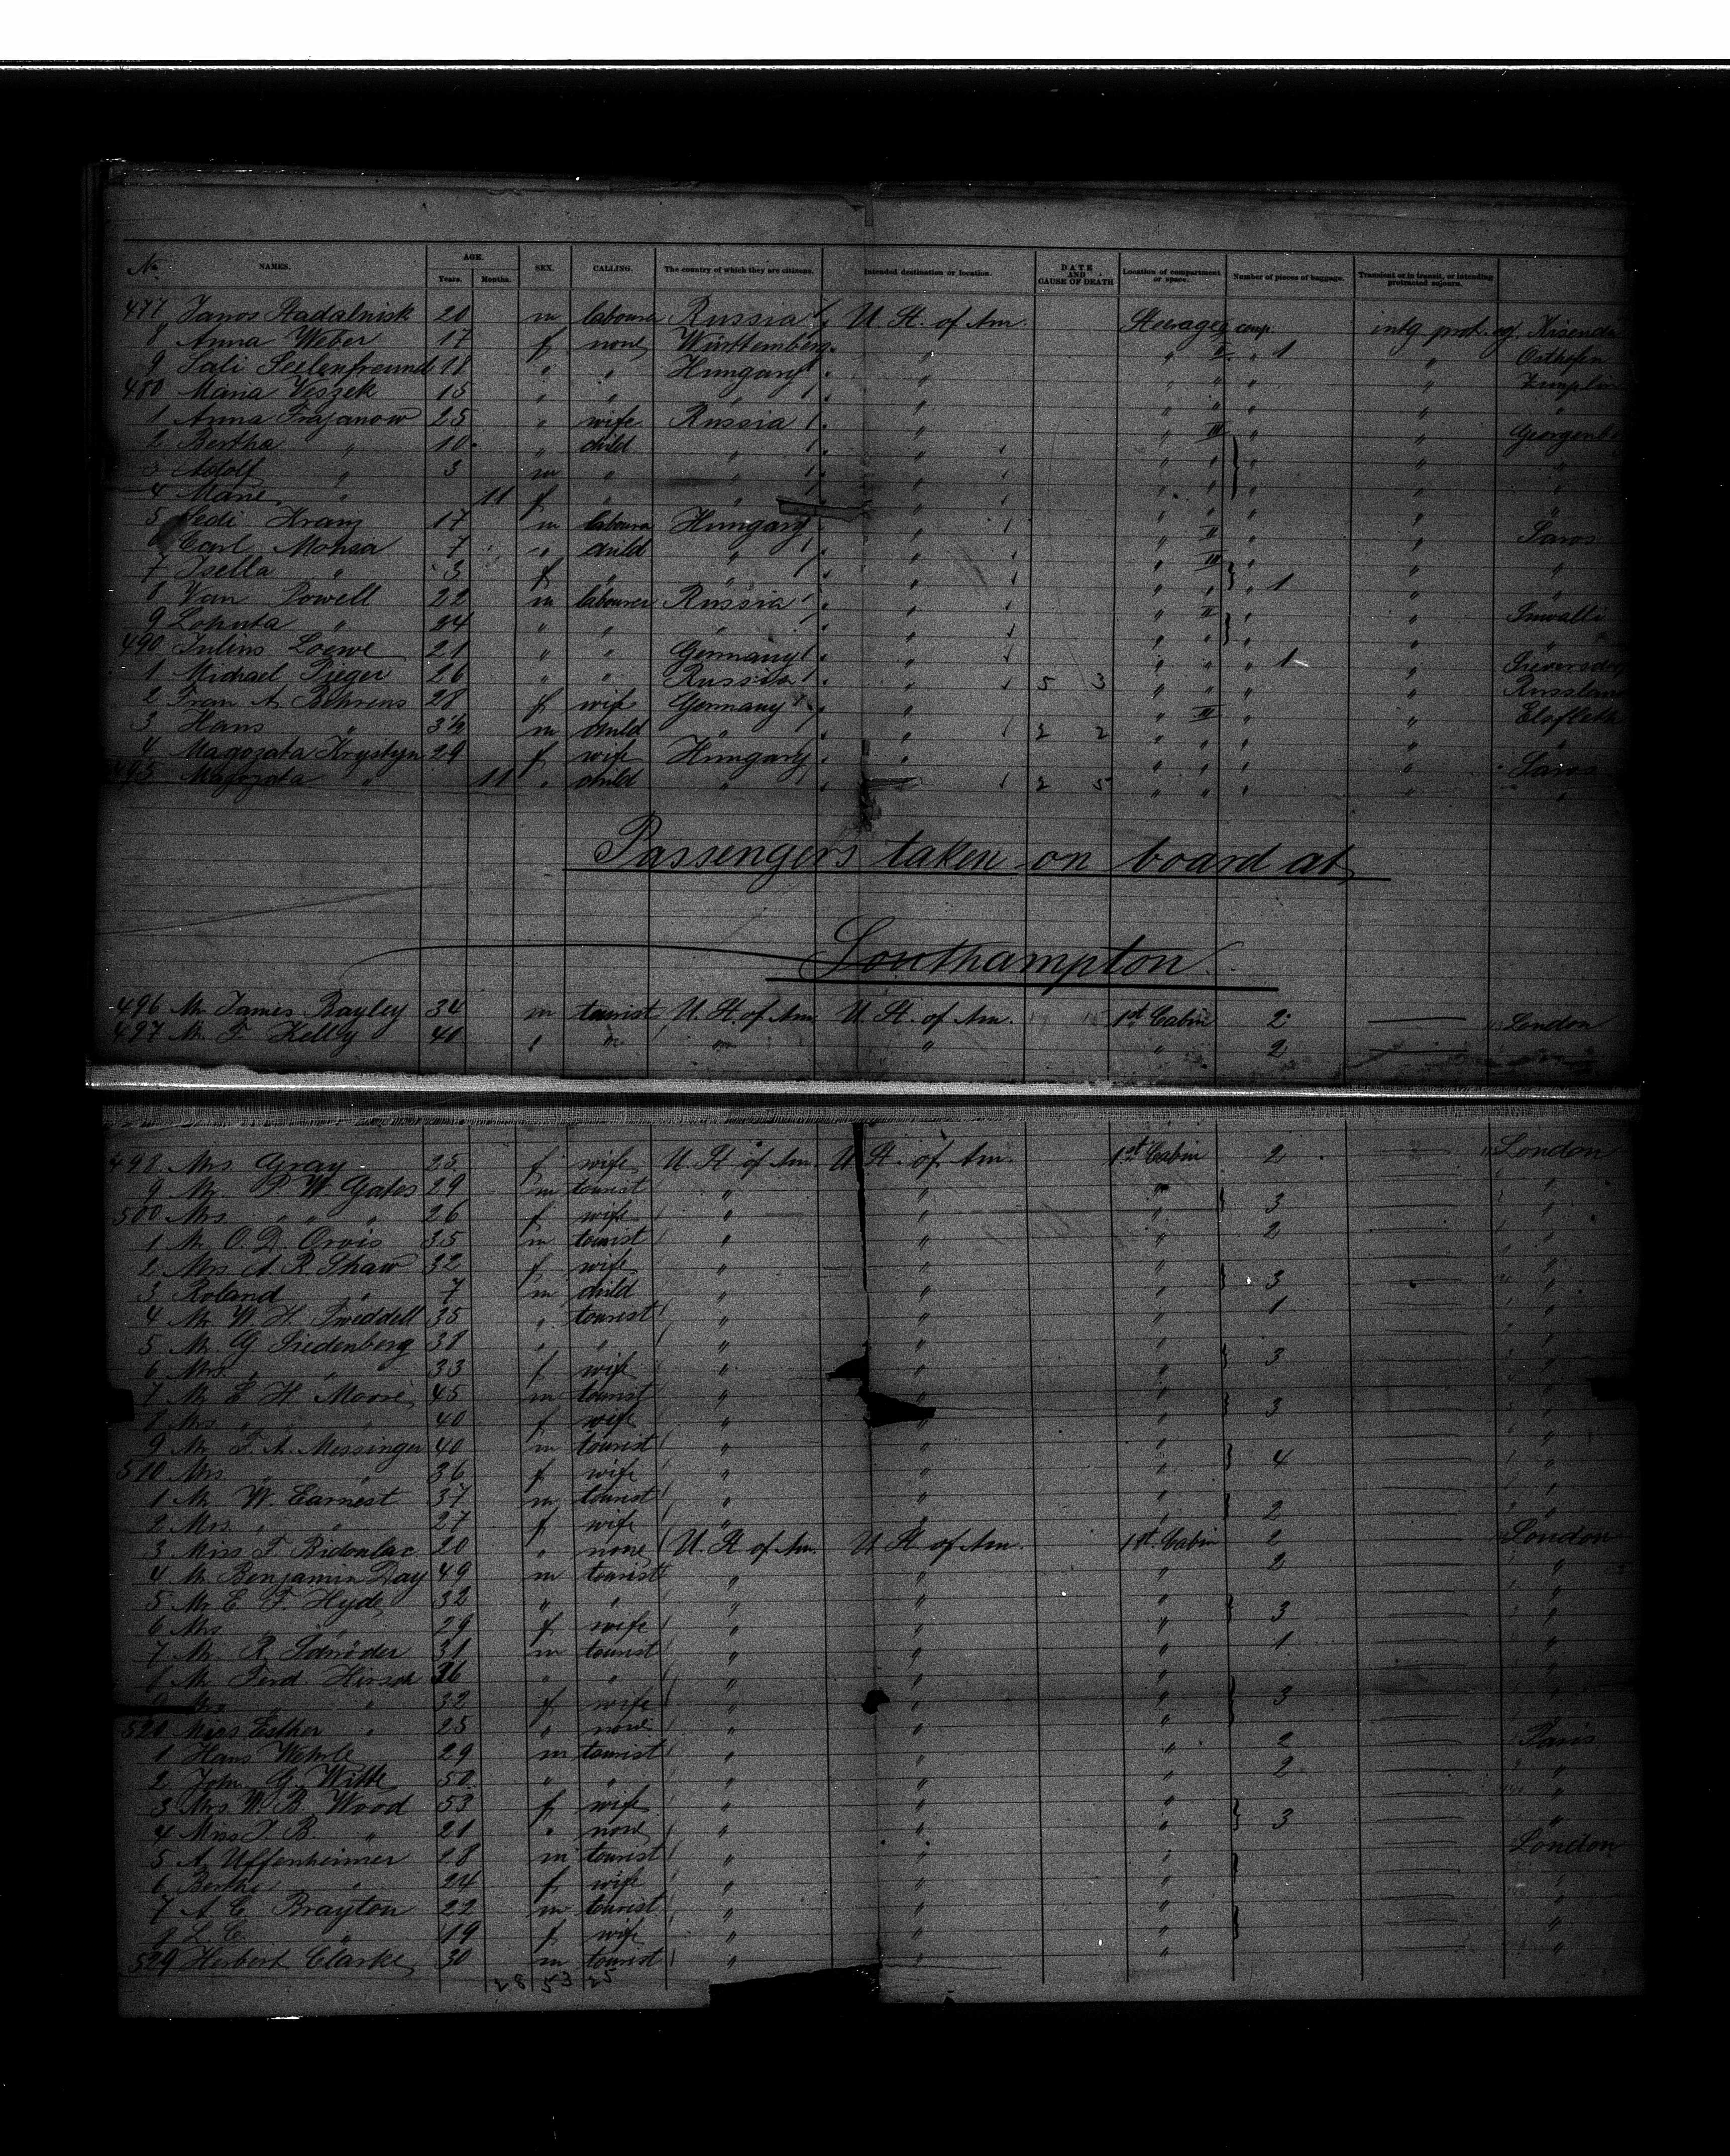 No. NAMES. AGE. Years. Months. SEX. CALLING. The country of which they are citizens. Intended destination or location. DATE AND CAUSE OF DEATH Location of compartment or space. Number of pieces of baggage. Transient or in transit, or intending protracted sojourn.
477 Janos Stadalnisk 20 m labourer Russia U. St. of Am. Steerage comp. intg prot. sj.
8 Anna Weber 17 f none Württemberg " " II " 1 " Osthofen
9 Sali Seelenfreund 18 " " Hungary " " " " "
480 Maria Viszek 15 " " " " " " " " "
1 Anna Trajanow 25 " wife Russia " " III " "
2 Bertha " 10 " child " " " " " " "
3 Adolf " 3 m " " " " " " " "
4 Marie " 11 f " " " " " " " "
5 Sedi Kranz 17 m labourer Hungary " " II " " Saros
6 Carl Mohsa 7 " child " " " III " " "
7 Isella " 3 f " " " " " " 1 " "
8 Van Powell 22 m labourer Russia " " II " " Suwalki
9 Lohuta " 24 " " " " " " " " "
490 Julius Loewe 21 " " Germany " " " " 1 "
1 Michael Pieger 26 " " Russia " 5 3 " " " " Russland
2 Frau A. Behrens 28 f wife Germany " " III " " Elsfleth
3 Hans " 3½ m child " " 2 2 " " " " "
4 Magozata Krystyn 29 f wife Hungary " " " " " Saros
495 Magozata " 11 " child " " 2 5 " " " " "
Passengers taken on board at
Southampton
496 Mr James Bayley 34 m tourist U. St. of Am. U. St. of Am. 1st Cabin 2 London
497 Mr. F. Kelby 40 " " " " " 2 "
498 Mrs Gray 25 f wife U. St. of Am. U. St. of Am. 1st Cabin 2 London
9 Mr. P. W. Gates 29 m tourist " " " 3 "
500 Mrs " " " 26 f wife " " " "
1 Mr. O. D. Orvis 35 m tourist " " " 2 "
2 Mrs A. R. Shaw 32 f wife " " " 3 "
3 Roland " 7 m child " " " "
4 Mr. W. H. Tweddell 35 " tourist " " " 1 "
5 Mr. G. Siedenberg 38 " " " " " 3 "
6 Mrs. " " 33 f wife " " " "
7 Mr E. H. Moore 45 m tourist " " " 3 "
8 Mrs " " " 40 f wife " " " "
9 Mr. F. A. Messinger 40 m tourist " " " 4 "
510 Mrs. " " 36 f wife " " " "
1 Mr W. Earnest 37 m tourist " " " 2 "
2 Mrs. " " 27 f wife " " " "
3 Miss F. Bidonlac 20 " none U. St. of Am. U. St. of Am. 1st Cabin 2 London
4 Mr. Benjamin Day 49 m tourist " " " 2 "
5 Mr E. F. Hyde 32 " " " " " 3 "
6 Mrs " " 29 f wife " " " "
7 Mr. R. Schröder 31 m tourist " " " 1 "
8 Mr Ferd Hirsch 36 " " " " " 3 "
9 Mrs " " 32 f wife " " " "
520 Miss Esther " 25 " none " " " "
1 Hans Wehrle 29 m tourist " " " 2 Paris
2 John G. Witte 50 " " " " " 2 "
3 Mrs W. B. Wood 53 f wife " " " 3 "
4 Miss J. B. " 21 " none " " " "
5 A. Uffenheimer 28 m tourist " " " London
6 Bertha " 24 f wife " " " "
7 A. C. Brayton 22 m tourist " " " "
8 L. C. " 19 f wife " " " "
529 Herbert Clarke 30 m tourist " " " "
28 53 25